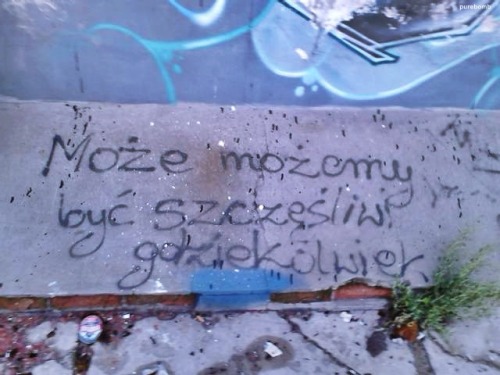 Może możemy
być szczęśliwi
gdziekolwiek